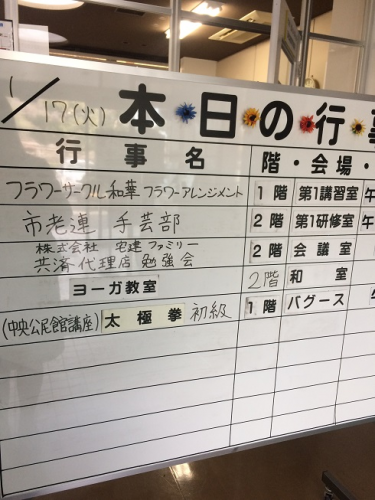 1/17(火) 本日の行事
行事名 階・会場・
フラワーサークル和華 フラワーアレンジメント 1階 第1講習室 午
市老連 手芸部 2階 第1研修室 午
株式会社 宅建ファミリー
共済代理店勉強会 2階 会議室
ヨーガ教室 2階 和室
(中央公民館講座) 太極拳 初級 1階 バグース